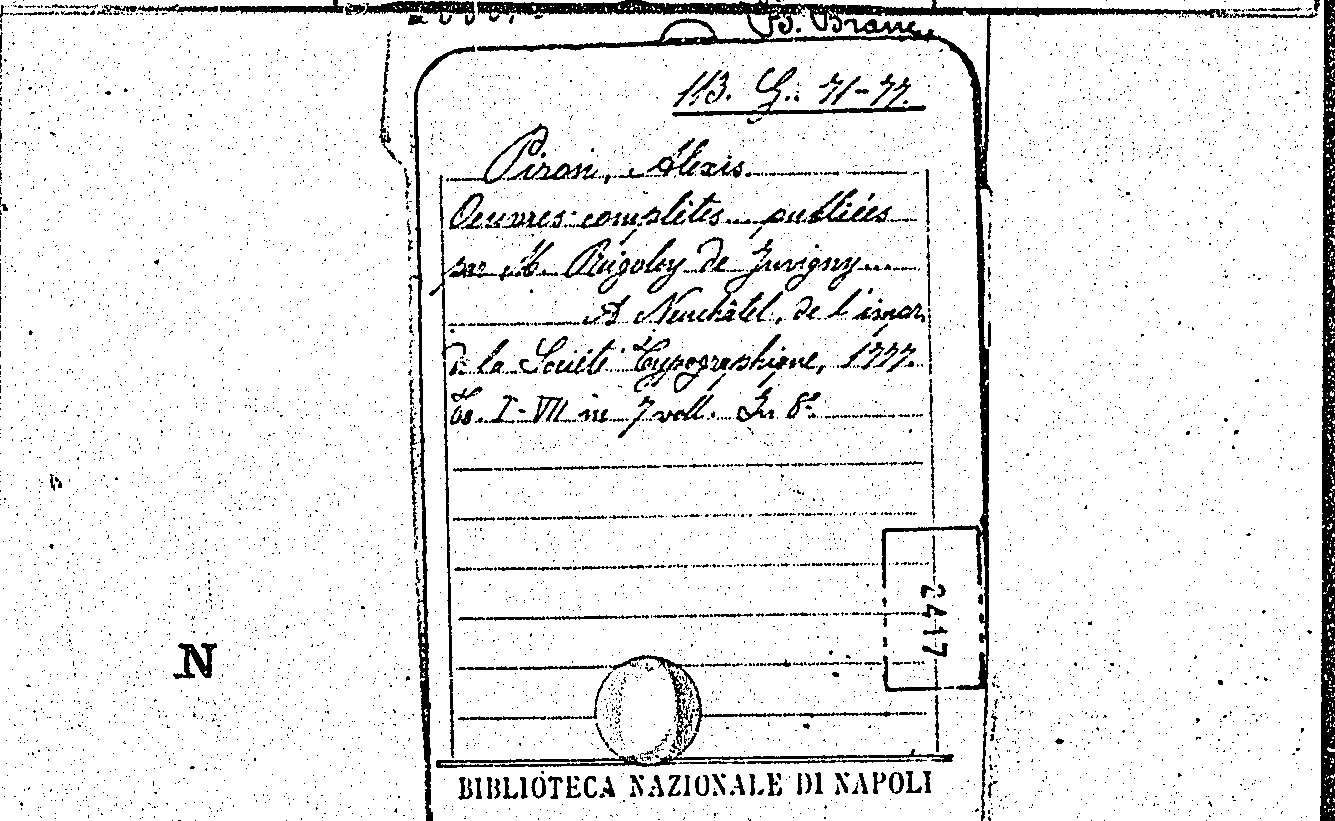 B. Branc
113. G. 71-77.
Piron, Alexis.
Oeuvres complètes... publiées
par M. Rigoley de Juvigny...
A Neuchâtel, de l'impr.
de la Société Typographique, 1777.
To. I-VII in 7 voll. In 8°
2417
N
BIBLIOTECA NAZIONALE DI NAPOLI